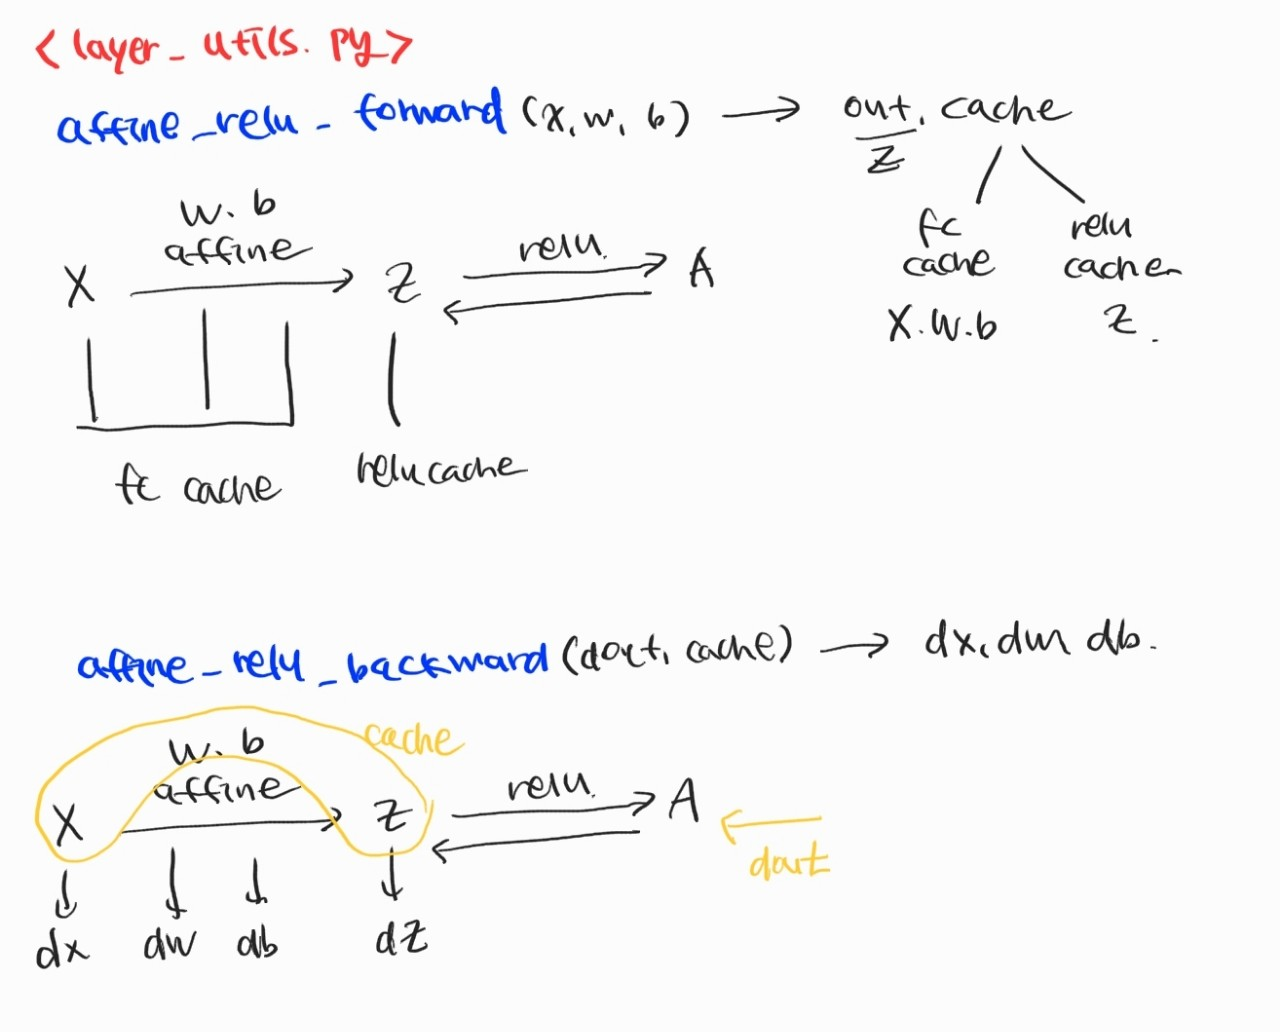 <layer_utils.py>
affine_relu_forward (x, w, b) → out, cache
z
w. b
affine
X
z
relu.
A
fc cache
relu cache
fc
cache
X.W.b
relu
cache
z.
affine_relu_backward (dout, cache) → dx, dw db.
cache
w. b
affine
X
z
relu.
A
dout
dx
dw
db
dz